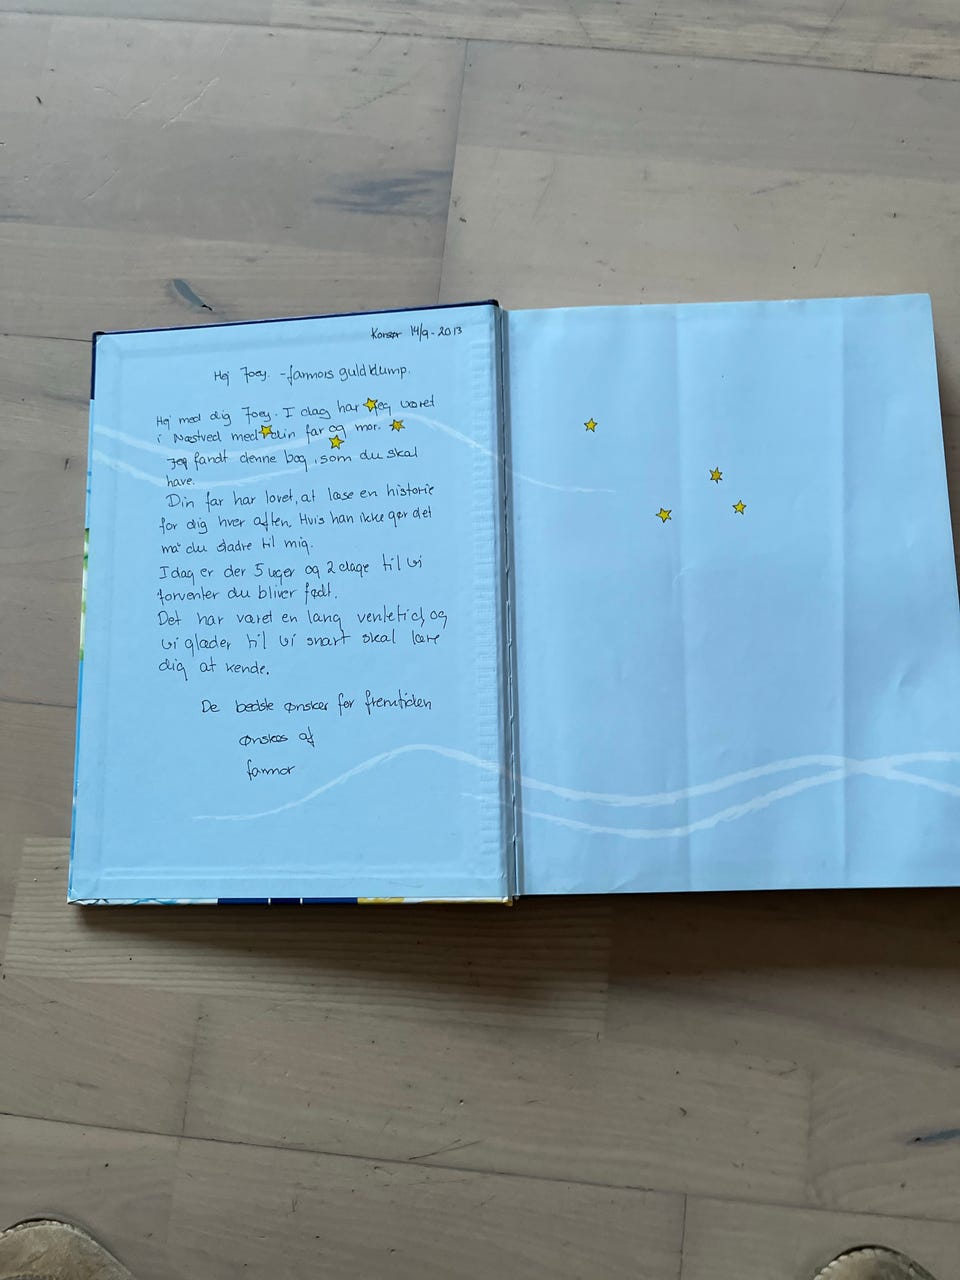 Korsør 14/9-2013
Hej Joey. -farmors guldklump.
Hej med dig Joey. I dag har jeg været
i Næstved med din far og mor.
Jeg fandt denne bog, som du skal
have.
Din far har lovet, at læse en historie
for dig hver aften. Hvis han ikke gør det
må du sladre til mig.
I dag er der 5 uger og 2 dage til vi
forventer du bliver født.
Det har været en lang ventetid, og
vi glæder til vi snart skal lære
dig at kende.
De bedste ønsker for fremtiden
ønskes af
farmor